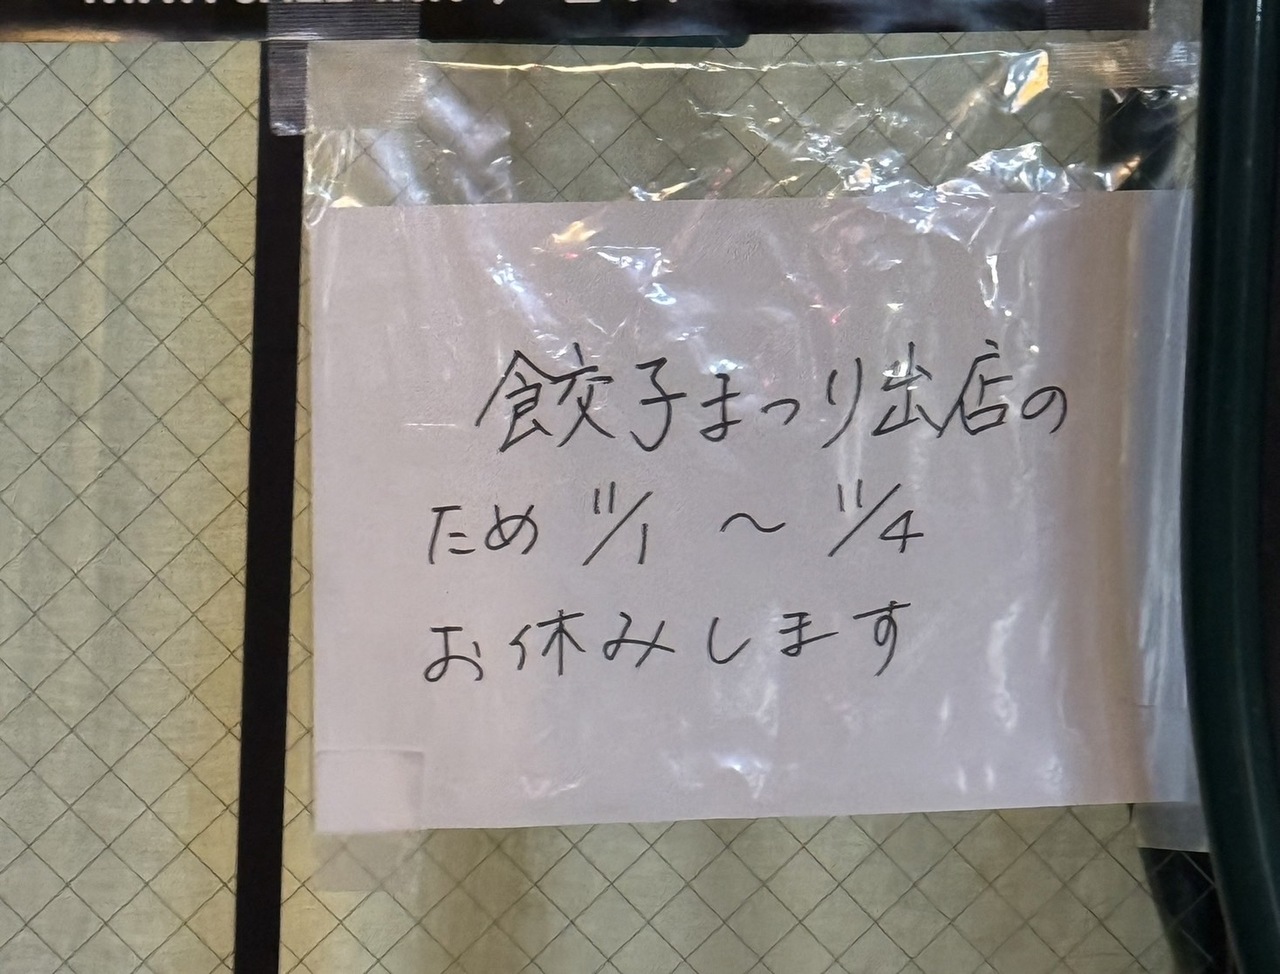 餃子まつり出店の
ため 11/1 〜 11/4
お休みします